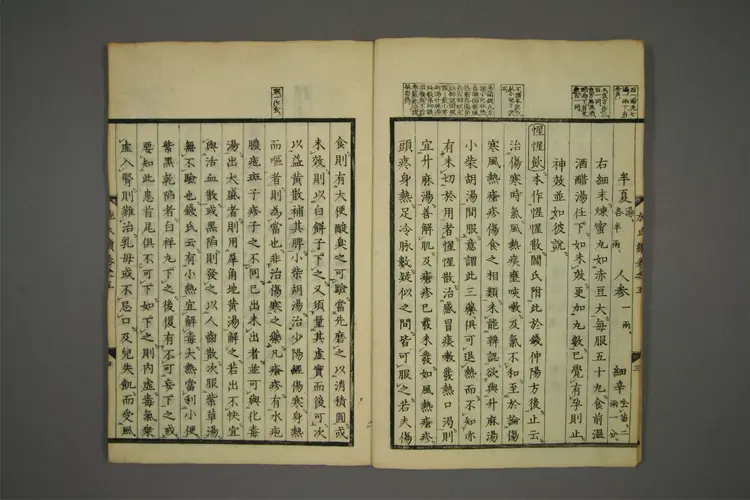 半夏湯各半兩 人參一兩 細辛
右細末煉蜜丸如赤豆大每服五十丸食前溫
酒醋湯任下如未效更加丸數已覺有孕則止
神效並如彼說
惺惺飲本作惺惺散閻氏附此於錢仲陽方後止云
治傷寒時氣風熱痰壅咳嗽及氣不和至於論傷
寒風熱瘡疹傷食之相類未能辨認欲與升麻湯
小柴胡湯間服意謂此三藥俱可退熱而不知亦
有未切於用者惺惺散治感冒痰嗽發熱口渴則
宜升麻湯善解肌及瘡疹已發未發如風熱瘡疹
頭疼身熱足冷脉數疑似之間皆可服之若夫傷
食則有大便酸臭之可驗當先磨之以消積圓或
未效則以白餅子下之又須量其虛實而後可次
以益黃散補其脾小柴胡湯治少陽經傷寒身熱
而嘔者則為當也非治傷寒之藥凡瘡疹有水疱
膿疱斑子疹子之不同已出未出者並可與化毒
湯出大盛者則用犀角地黃湯解之若出不快宜
與活血散或黑陷則發之以人齒散次服紫草湯
無不驗也錢氏云有小熱宜解毒大熱當利小便
紫黑乾陷者百祥丸下之後復有不可妄下之戒
要知此患首尾俱不可下如下之則内虛毒氣乘
虛入腎則難治乳母或不忌口及兒失飢而受風